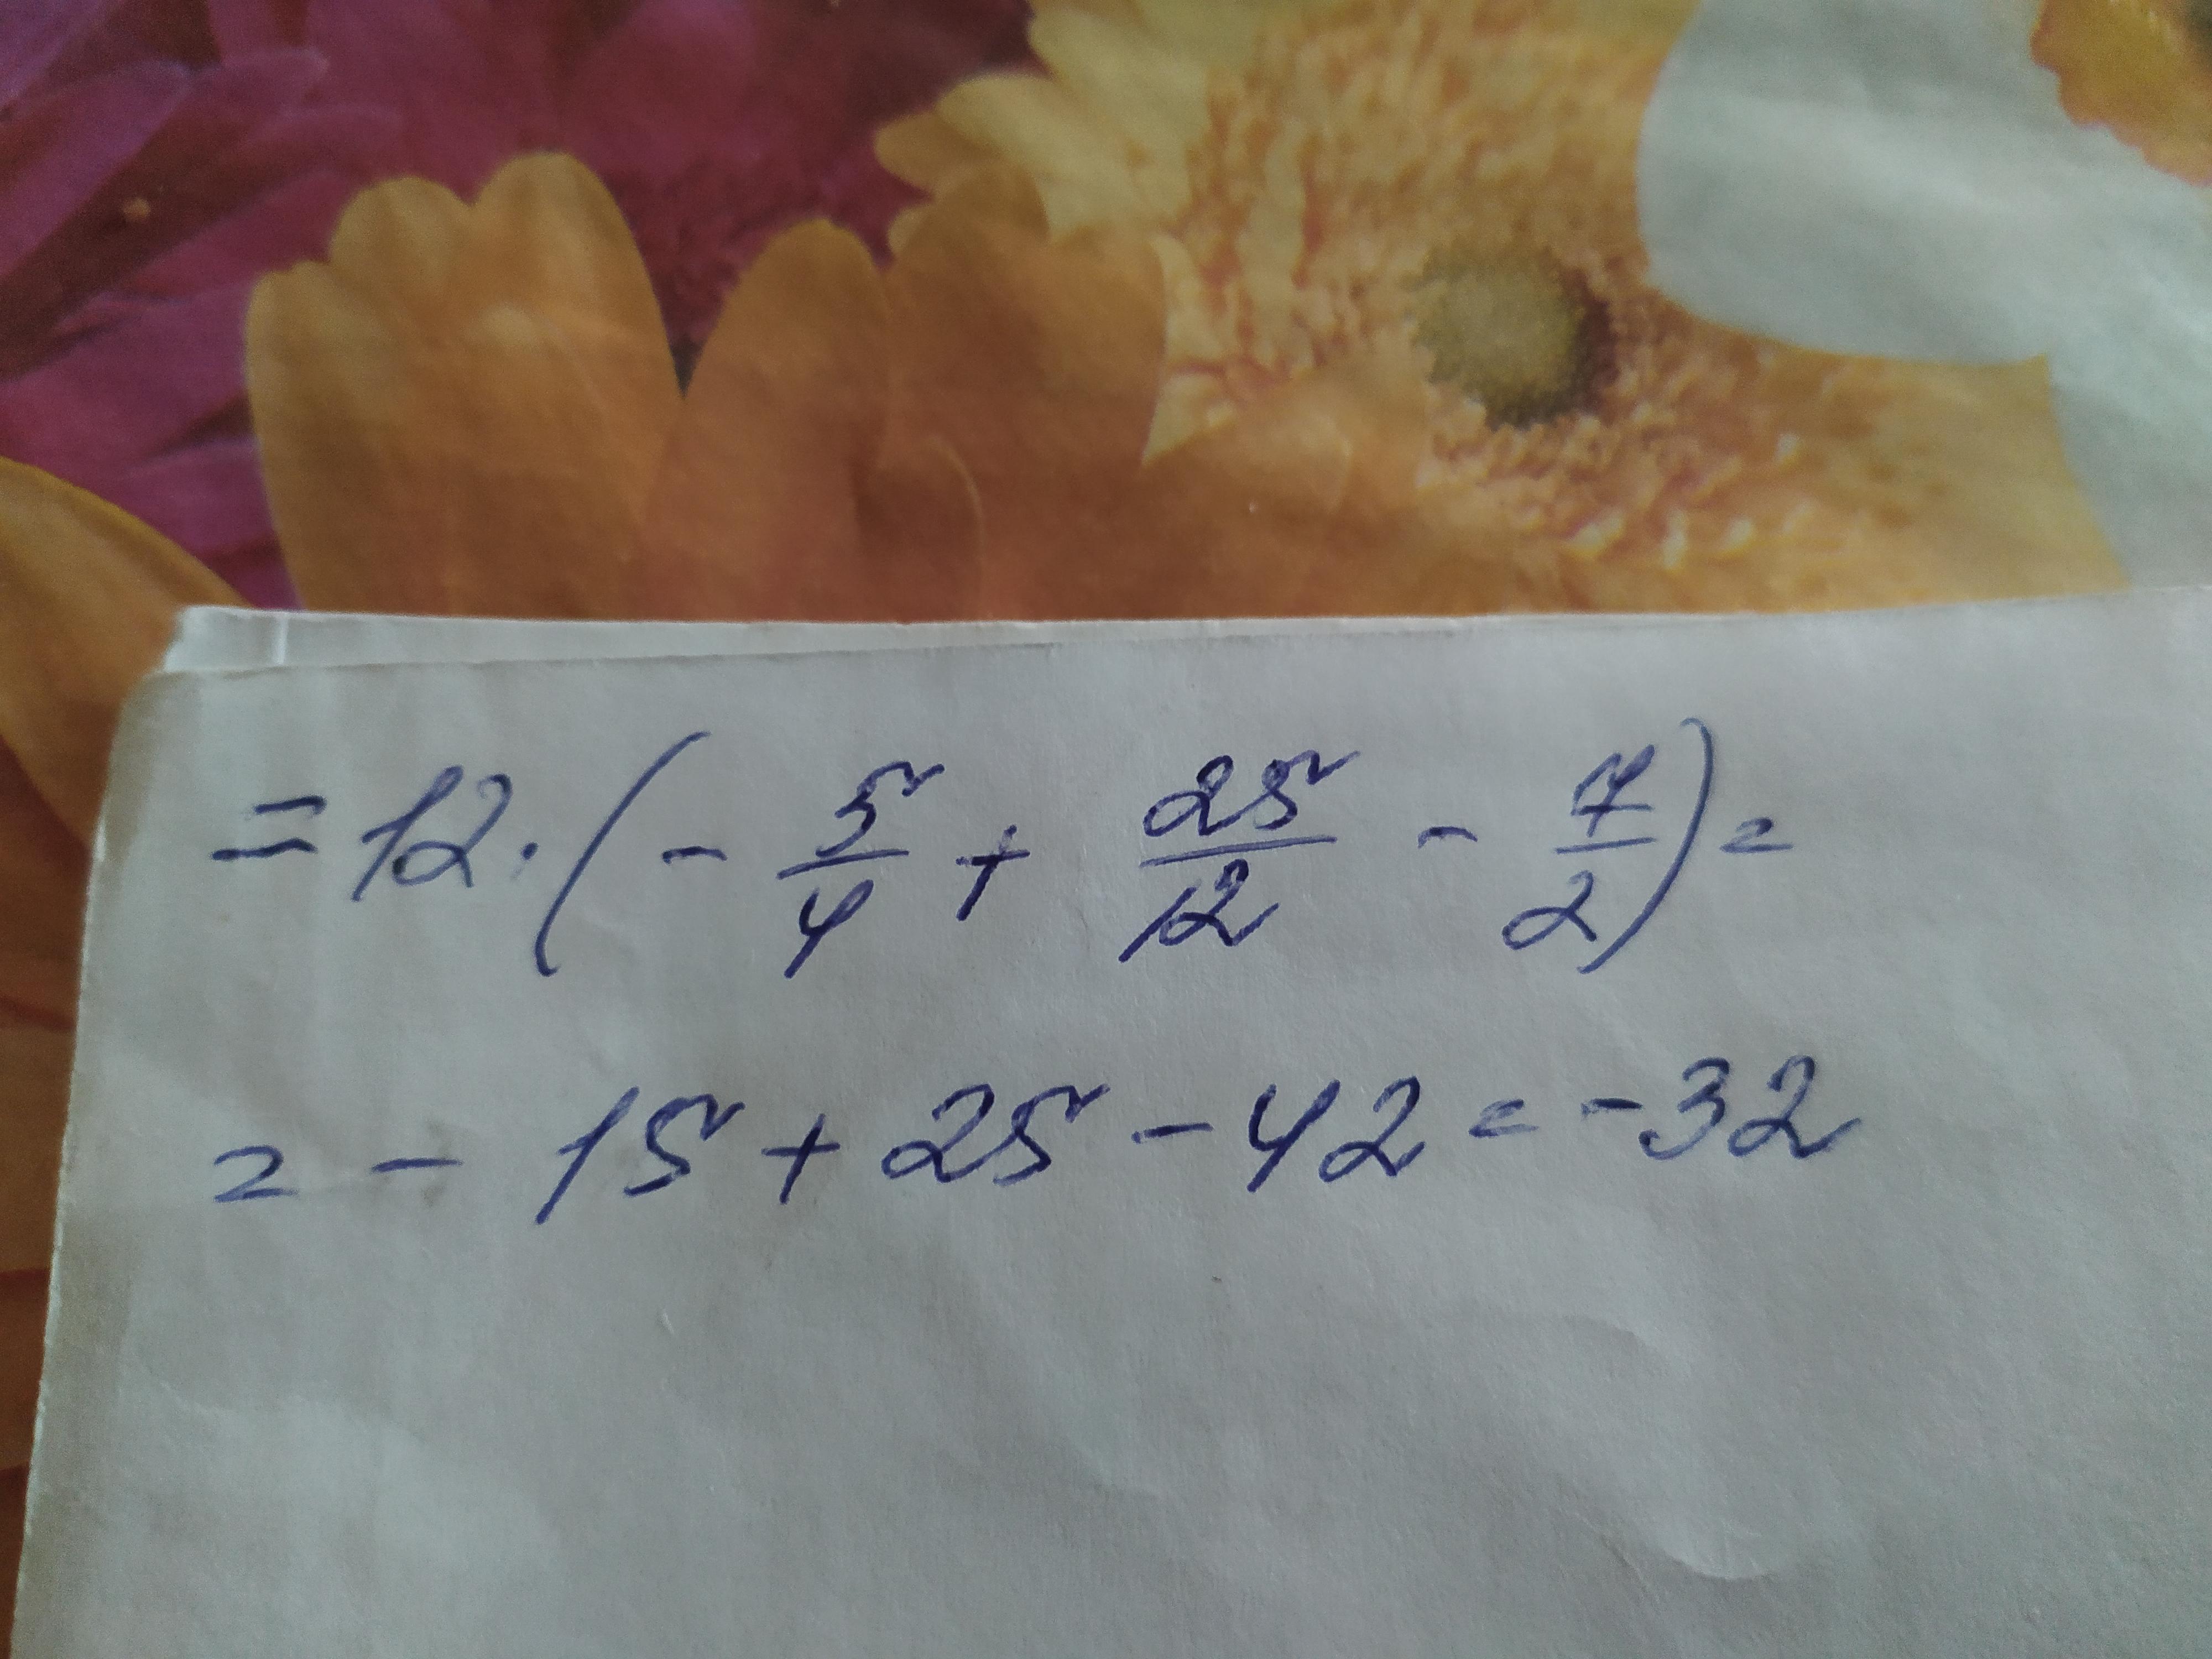 = 12 · ( - 5/4 + 25/12 - 7/2 ) =
= - 15 + 25 - 42 = - 32